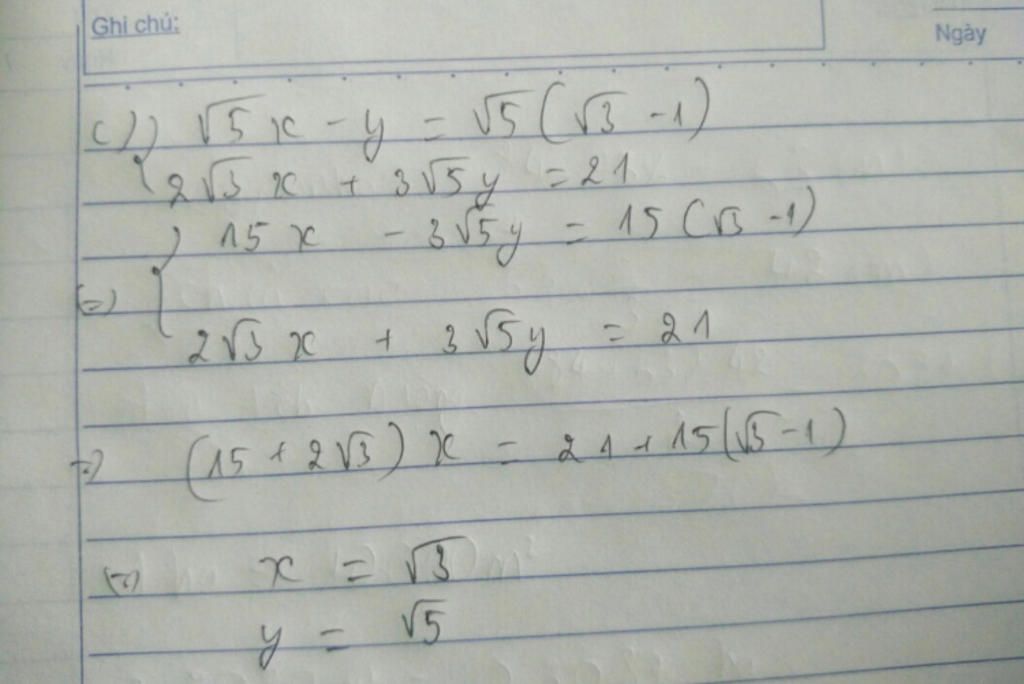 Ghi chú:
Ngày
c) { √5 x - y = √5 (√3 - 1)
2√3 x + 3√5 y = 21
(=) { 15 x - 3√5 y = 15 (√3 - 1)
2√3 x + 3√5 y = 21
=) (15 + 2√3) x = 21 + 15 (√3 - 1)
(=) x = √3
y = √5